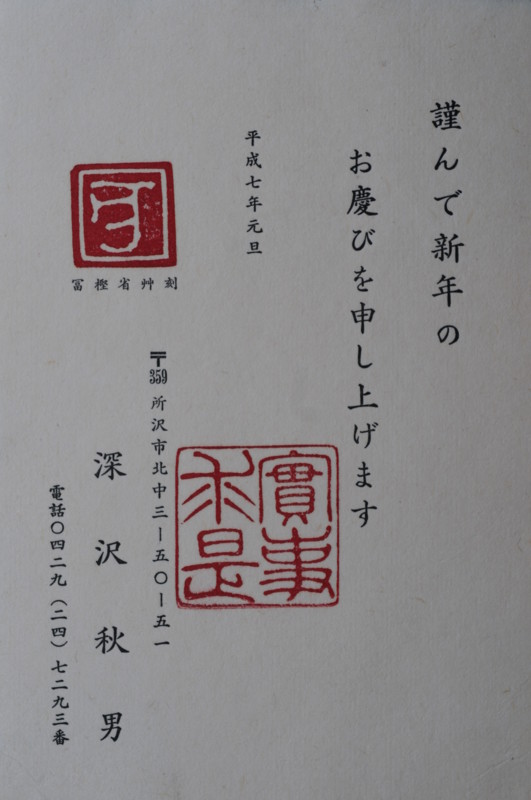 謹んで新年の
お慶びを申し上げます
平成七年元旦
實事
求是
冨樫省艸刻
〒359 所沢市北中三ー五〇ー五一
深沢秋男
電話〇四二九(二四)七二九三番